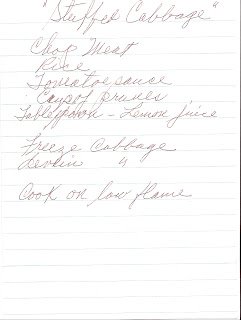 "Stuffed Cabbage"
Chop Meat
Rice
Tomatoe sauce
Can of prunes
Tablespoon - Lemon juice
Freeze Cabbage
4
Cook on low flame